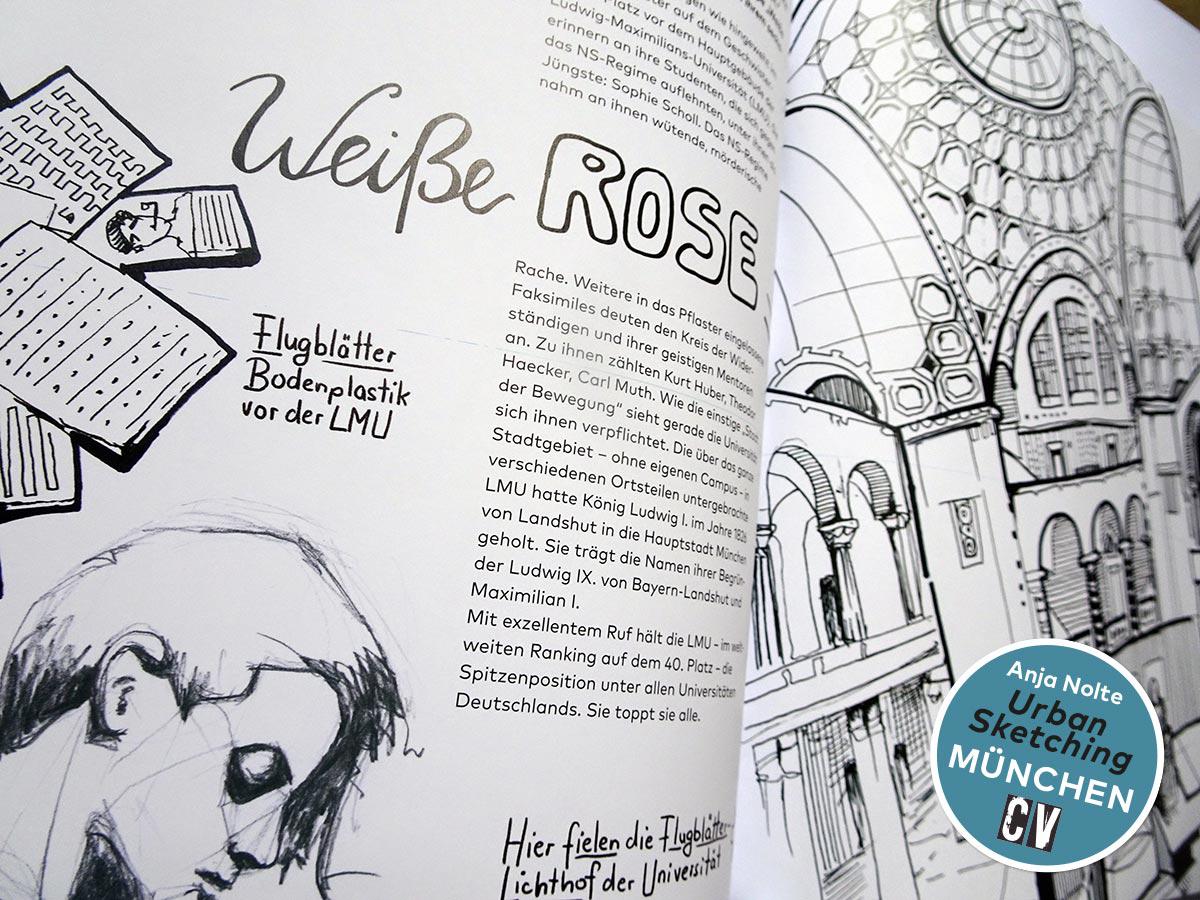 gen wie hingeweht
auf dem Geschwister
platz vor dem Hauptgebäude der
Ludwig-Maximilians-Universität (LMU)
erinnern an ihre Studenten, die sich gegen
das NS-Regime auflehnten, unter ihnen
Jüngste: Sophie Scholl. Das NS-Regime
nahm an ihnen wütende, mörderische
Weiße ROSE
Rache. Weitere in das Pflaster eingelassene
Faksimiles deuten den Kreis der Wider-
ständigen und ihrer geistigen Mentoren
an. Zu ihnen zählten Kurt Huber, Theodor
Haecker, Carl Muth. Wie die einstige „Stadt
der Bewegung“ sieht gerade die Universität
sich ihnen verpflichtet. Die über das ganze
Stadtgebiet – ohne eigenen Campus – in
verschiedenen Ortsteilen untergebrachte
LMU hatte König Ludwig I. im Jahre 1826
von Landshut in die Hauptstadt München
geholt. Sie trägt die Namen ihrer Begrün-
der Ludwig IX. von Bayern-Landshut und
Maximilian I.
Mit exzellentem Ruf hält die LMU – im welt-
weiten Ranking auf dem 40. Platz – die
Spitzenposition unter allen Universitäten
Deutschlands. Sie toppt sie alle.
Flugblätter
Bodenplastik
vor der LMU
Hier fielen die Flugblätter
Lichthof der Universität
Anja Nolte
Urban
Sketching
MÜNCHEN
CV